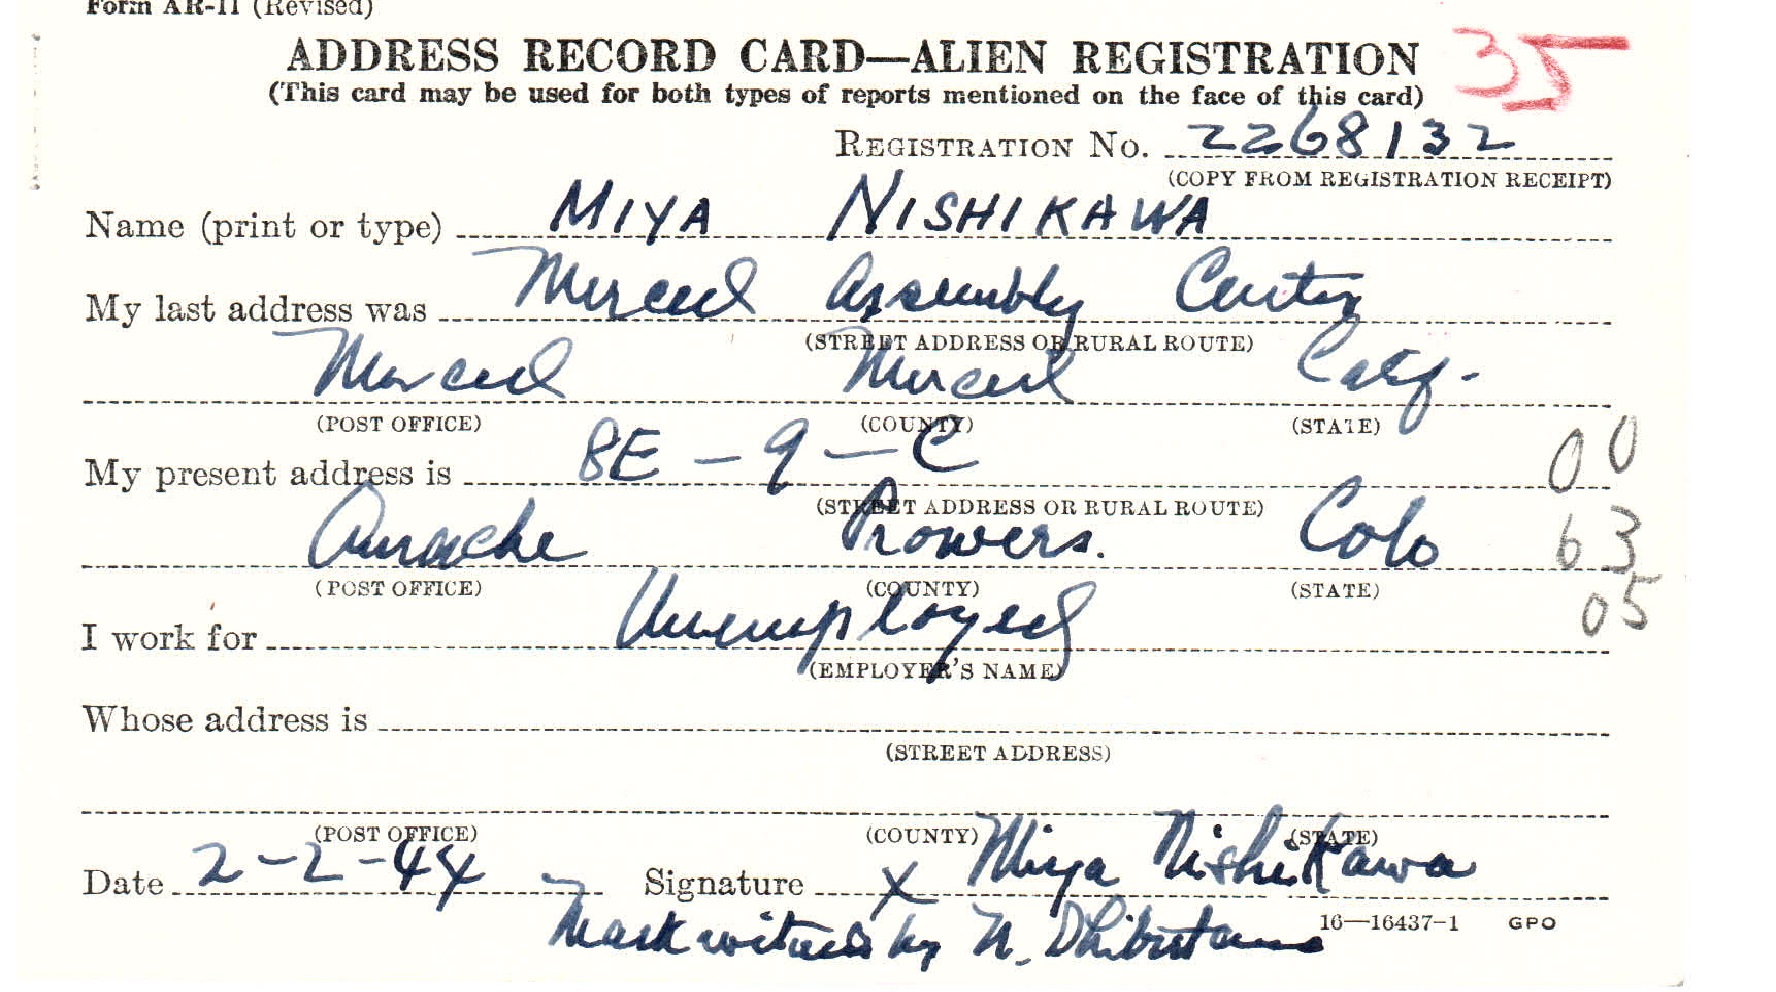 Form AR-11 (Revised)
ADDRESS RECORD CARD—ALIEN REGISTRATION
35
(This card may be used for both types of reports mentioned on the face of this card)
REGISTRATION No. 2268132
(COPY FROM REGISTRATION RECEIPT)
Name (print or type) MIYA NISHIKAWA
My last address was Merced Assembly Center
(STREET ADDRESS OR RURAL ROUTE)
Merced Merced Calif.
(POST OFFICE) (COUNTY) (STATE)
My present address is 8E-9-C
00
(STREET ADDRESS OR RURAL ROUTE)
Amache Prowers. Colo
63
(POST OFFICE) (COUNTY) (STATE)
05
I work for Unemployed
(EMPLOYER'S NAME)
Whose address is
(STREET ADDRESS)
(POST OFFICE) (COUNTY) (STATE)
Date 2-2-44 Signature X Miya Nishikawa
Mark witness by N.
16—16437-1 GPO